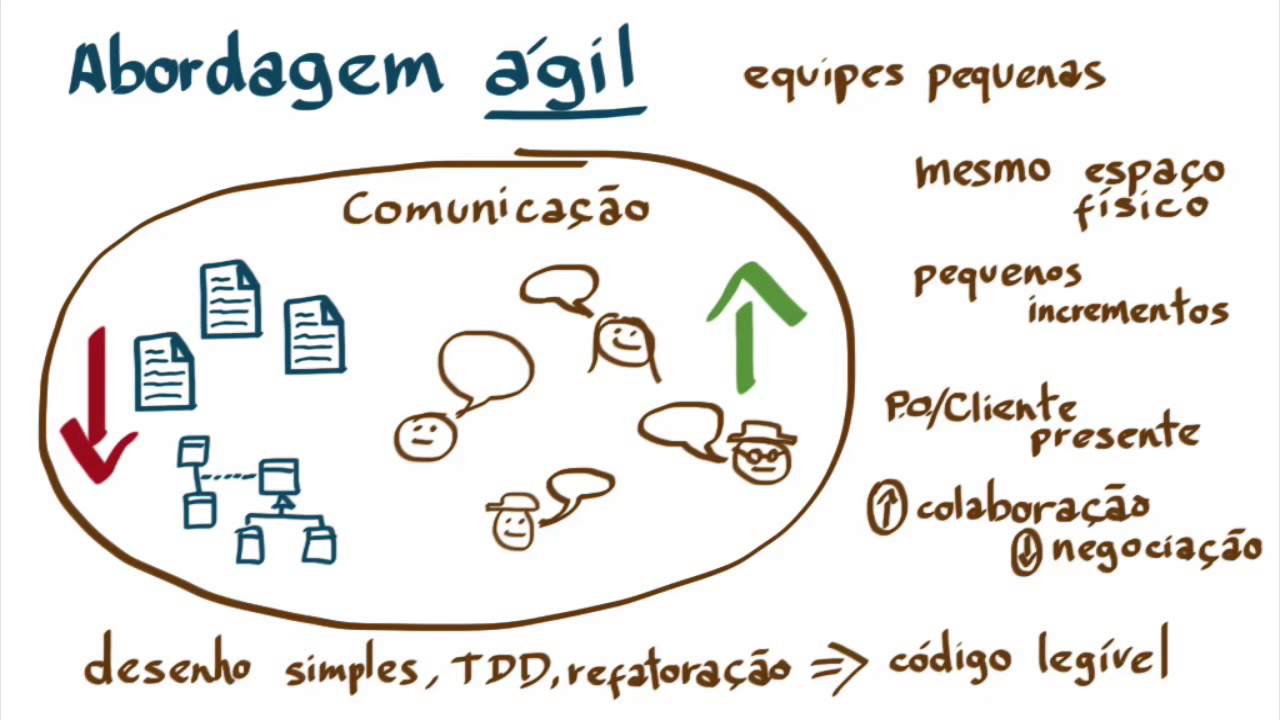 Abordagem ágil
equipes pequenas
mesmo espaço
físico
pequenos
incrementos
P.O./Cliente
presente
↑ colaboração
↓ negociação
Comunicação
desenho simples, TDD, refatoração => código legível